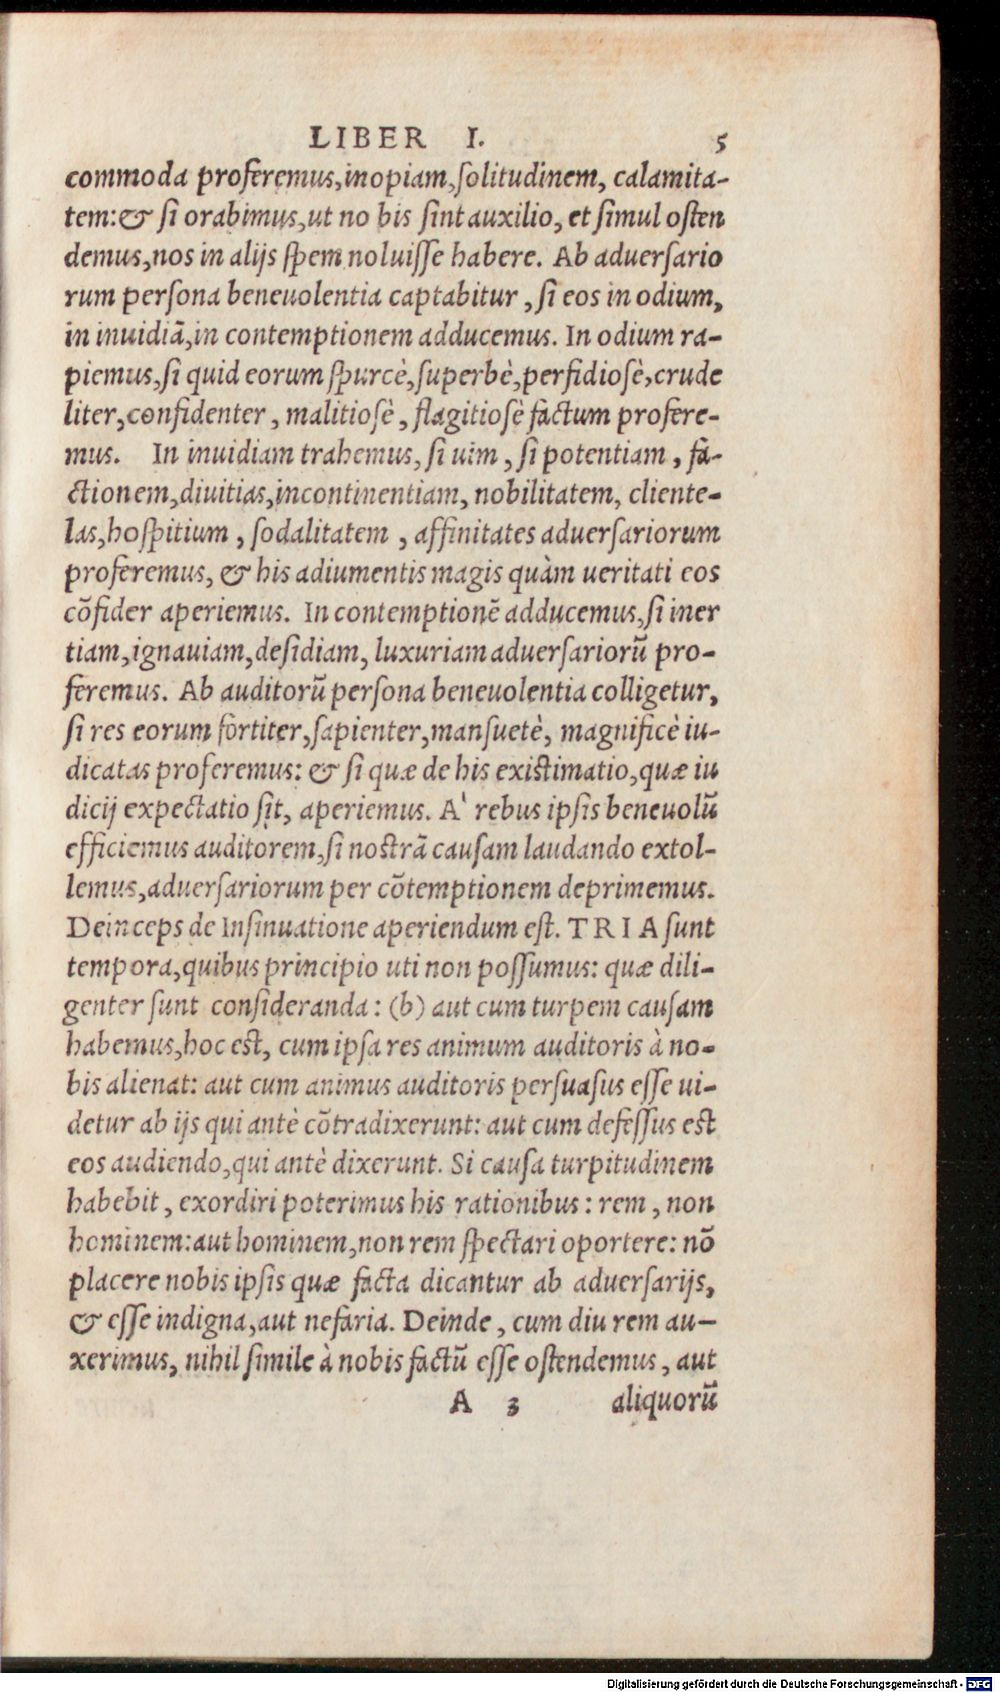 LIBER I. 5
commoda proferemus,inopiam,solitudinem, calamita-
tem:& si orabimus,ut no bis sint auxilio, et simul osten
demus,nos in alijs spem noluisse habere. Ab aduersario
rum persona beneuolentia captabitur, si eos in odium,
in inuidiã,in contemptionem adducemus. In odium ra-
piemus,si quid eorum spurcè,superbè,perfidiosè,crude
liter,confidenter, malitiosè, flagitiosè factum profere-
mus. In inuidiam trahemus, si uim, si potentiam, fa-
ctionem,diuitias,incontinentiam, nobilitatem, cliente-
las,hospitium, sodalitatem, affinitates aduersariorum
proferemus, & his adiumentis magis quàm ueritati eos
cõfider aperiemus. In contemptionẽ adducemus,si iner
tiam,ignauiam,desidiam, luxuriam aduersariorũ pro-
feremus. Ab auditorũ persona beneuolentia colligetur,
si res eorum fortiter,sapienter,mansuetè, magnificè iu-
dicatas proferemus: & si quæ de his existimatio,quæ iu
dicij expectatio sit, aperiemus. A' rebus ipsis beneuolũ
efficiemus auditorem,si nostrã causam laudando extol-
lemus,aduersariorum per cõtemptionem deprimemus.
Deinceps de Insinuatione aperiendum est. TRIA sunt
tempora,quibus principio uti non possumus: quæ dili-
genter sunt consideranda: (b) aut cum turpem causam
habemus,hoc est, cum ipsa res animum auditoris à no-
bis alienat: aut cum animus auditoris persuasus esse ui-
detur ab ijs qui antè cõtradixerunt: aut cum defessus est
eos audiendo,qui antè dixerunt. Si causa turpitudinem
habebit, exordiri poterimus his rationibus: rem, non
hominem:aut hominem,non rem spectari oportere: nõ
placere nobis ipsis quæ facta dicantur ab aduersarijs,
& esse indigna,aut nefaria. Deinde, cum diu rem au-
xerimus, nihil simile à nobis factũ esse ostendemus, aut
A 3 aliquorũ
Digitalisierung gefördert durch die Deutsche Forschungsgemeinschaft - DFG